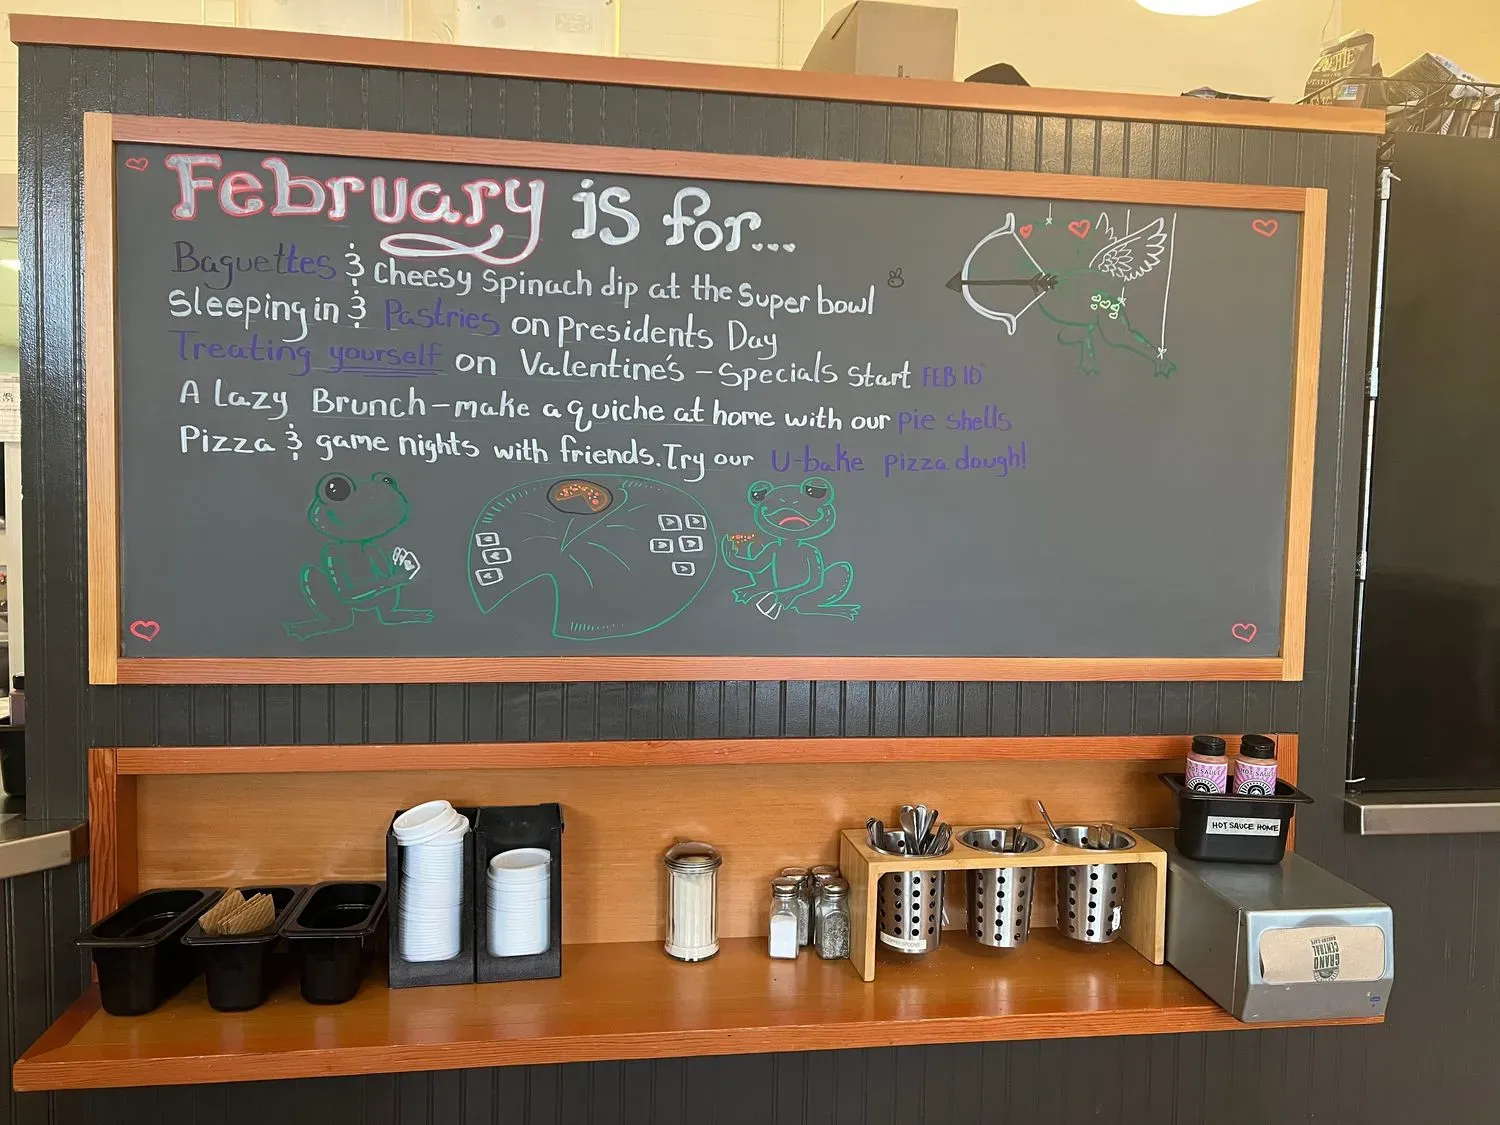 February is for...
Baguettes & Cheesy Spinach dip at the Super bowl
Sleeping in & Pastries on Presidents Day
Treating yourself on Valentine's - Specials Start FEB 10
A Lazy Brunch - make a quiche at home with our pie shells
Pizza & game nights with friends. Try our U-bake pizza dough!
HOT SAUCE
HOT SAUCE
HOT SAUCE HOME
COFFEE SPOONS
GRAND
CENTRAL
BAKERY CAFE